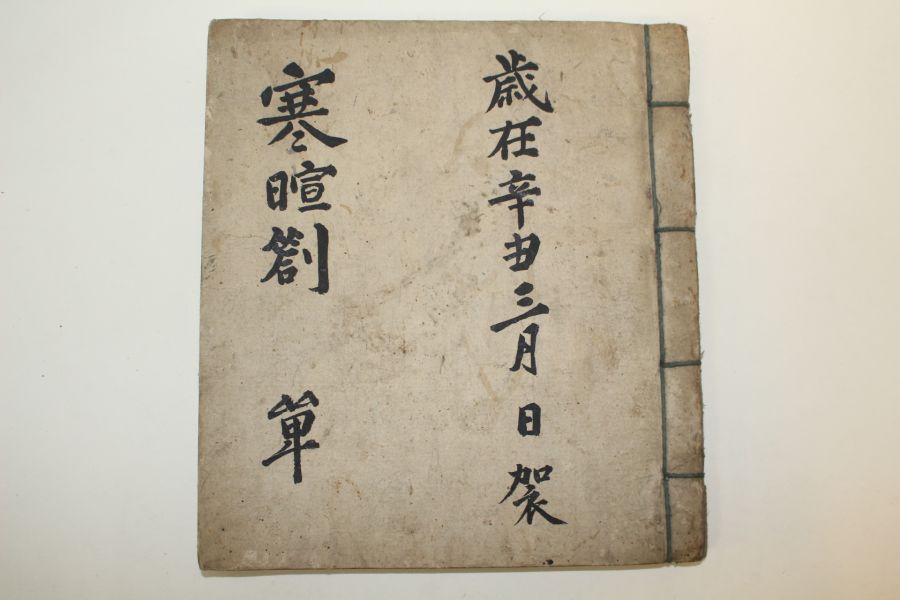 歲在辛丑三月 日 袈
寒暄劄 單